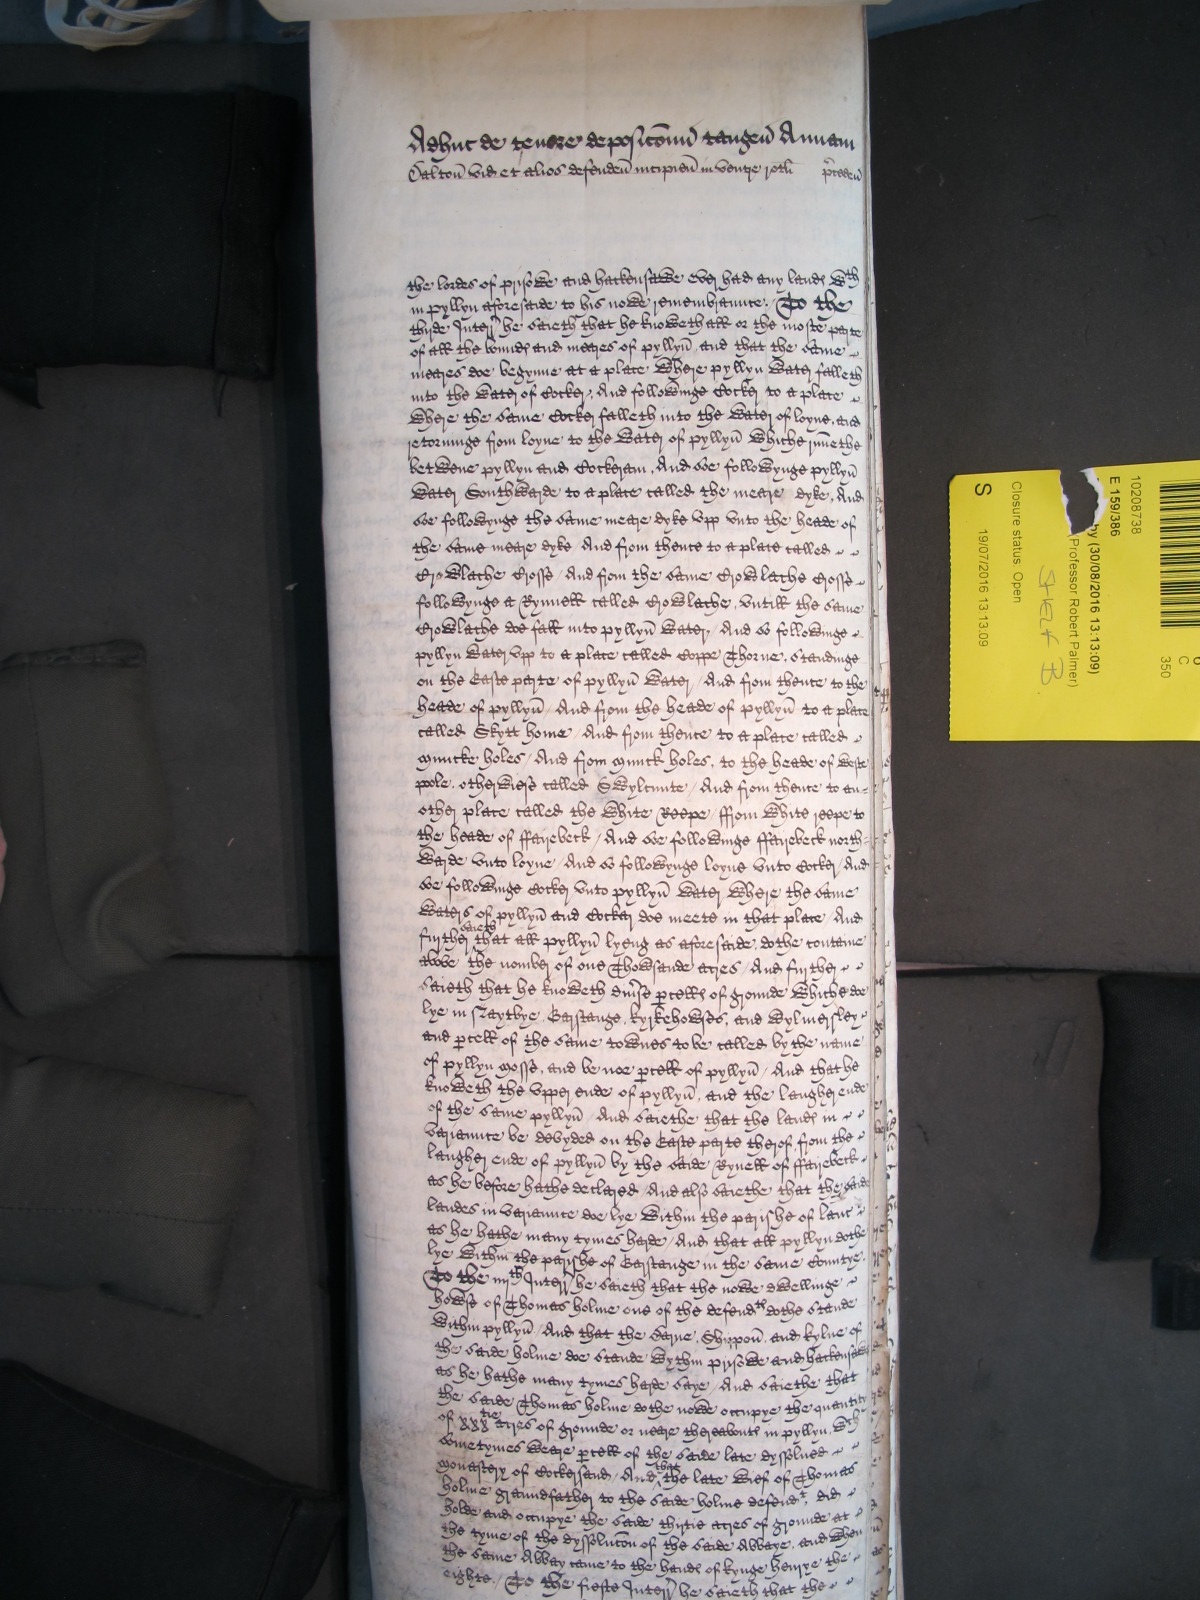 Adhuc de tenore deposicōnū tangeñ Annam
Calton vid et alios defendeñ incipieñ in ventre rotłi p̄cedeñ
the lordes of prisowe and hackensawe ever had any landes wth
in pyllyn aforesaide to his nowe remembraunce. / To the
thirde Interr he saieth that he knoweth all or the moste parte
of all the boundes and meares of pyllyn, and that the same
meares doe begynne at a place where pyllyn water falleth
into the water of Cocker, And followinge Cocker to a place
where the same Cocker falleth into the water of loyne, and
retorninge from loyne to the water of pyllyn whiche runethe
betwene pyllyn and Cockeram, And soe followynge pyllyn
water Southwarde to a place called the meare dyke, And
soe followynge the same meare dyke vpp vnto the heade of
the same meare dyke And from thence to a place called
Crowlache Crosse / And from the same Crowlache Crosse
followynge a Rynnell called Crowlache, vntill the same
Crowlache doe fall into pyllyn water, And so followinge
pyllyn water vpp to a place called Coppe Thorne, standinge
on the Easte parte of pyllyn water / And from thence to the
heade of pyllyn / And from the heade of pyllyn to a place
called Skytt home / And from thence to a place called
munke holes / And from munck holes, to the heade of weste
poole, otherwiese called Swylcunte / And from thence to an=
other place called the white Reepe / ffrom white reepe to
the heade of ffairebeck / And soe followinge ffairebeck north=
warde vnto loyne / And so followynge loyne vnto Cocker, And
soe followinge Cocker vnto pyllyn water where the same
waters of pyllyn and Cocker doe meete in that place And
further saieth that all pyllyn lyeng as aforesaide, dothe containe
above the nomber of one Thowsande acres / And further
saieth that he knoweth diūse p̱cells of grounde whiche doe
lye in Garstange, kyrkehowses, and wylmersley
and p̱cell of the same townes to be called by the name
of pyllyn mosse, and be noe p̱cell of pyllyn / And that he
knoweth the vpper ende of pyllyn, and the laugher ende
of the same pyllyn / And saiethe that the landes in
variaunce be devyded on the Easte parte therof from the
laugher ende of pyllyn by the saide Rynell of ffairebeck
as he before hathe declared / And also saiethe that the saide
landes in variaunce doe lye within the parishe of lanc
as he hathe many tymes harde / And that all pyllyn dothe
lye within the parishe of Garstange in the same Countye.
To the iiiith Interr he saieth that the nowe dwellinge
howse of Thomas holme one of the defendts dothe stande
within pyllyn / And that the barne, Shippon, and kylne of
the saide holme doe stande wythin prisowe and hackensawe
as he hathe many tymes harde saye / And saiethe that
the saide Thomas holme dothe nowe occupye the quantity
of xxxtie acres of grounde or neare thereaboutes in pyllyn, wch
sometymes weare p̱cell of the saide late dyssolued
monastery of Cockersand / And that the late wief of Thomas
holme graundfather to the saide holme defendt, did
holde and occupye the saide thirtie acres of grounde at
the tyme of the dyssolucōn of the saide Abbaye, and when
the same Abbay came to the handes of kynge henrye the
eighte. / To the fiefte Interr he saieth that the
10208738
E 159/386
by (30/08/2016 13:13:09)
Professor Robert Palmer)
Closure status: Open
S 19/07/2016 13:13:09
C
350